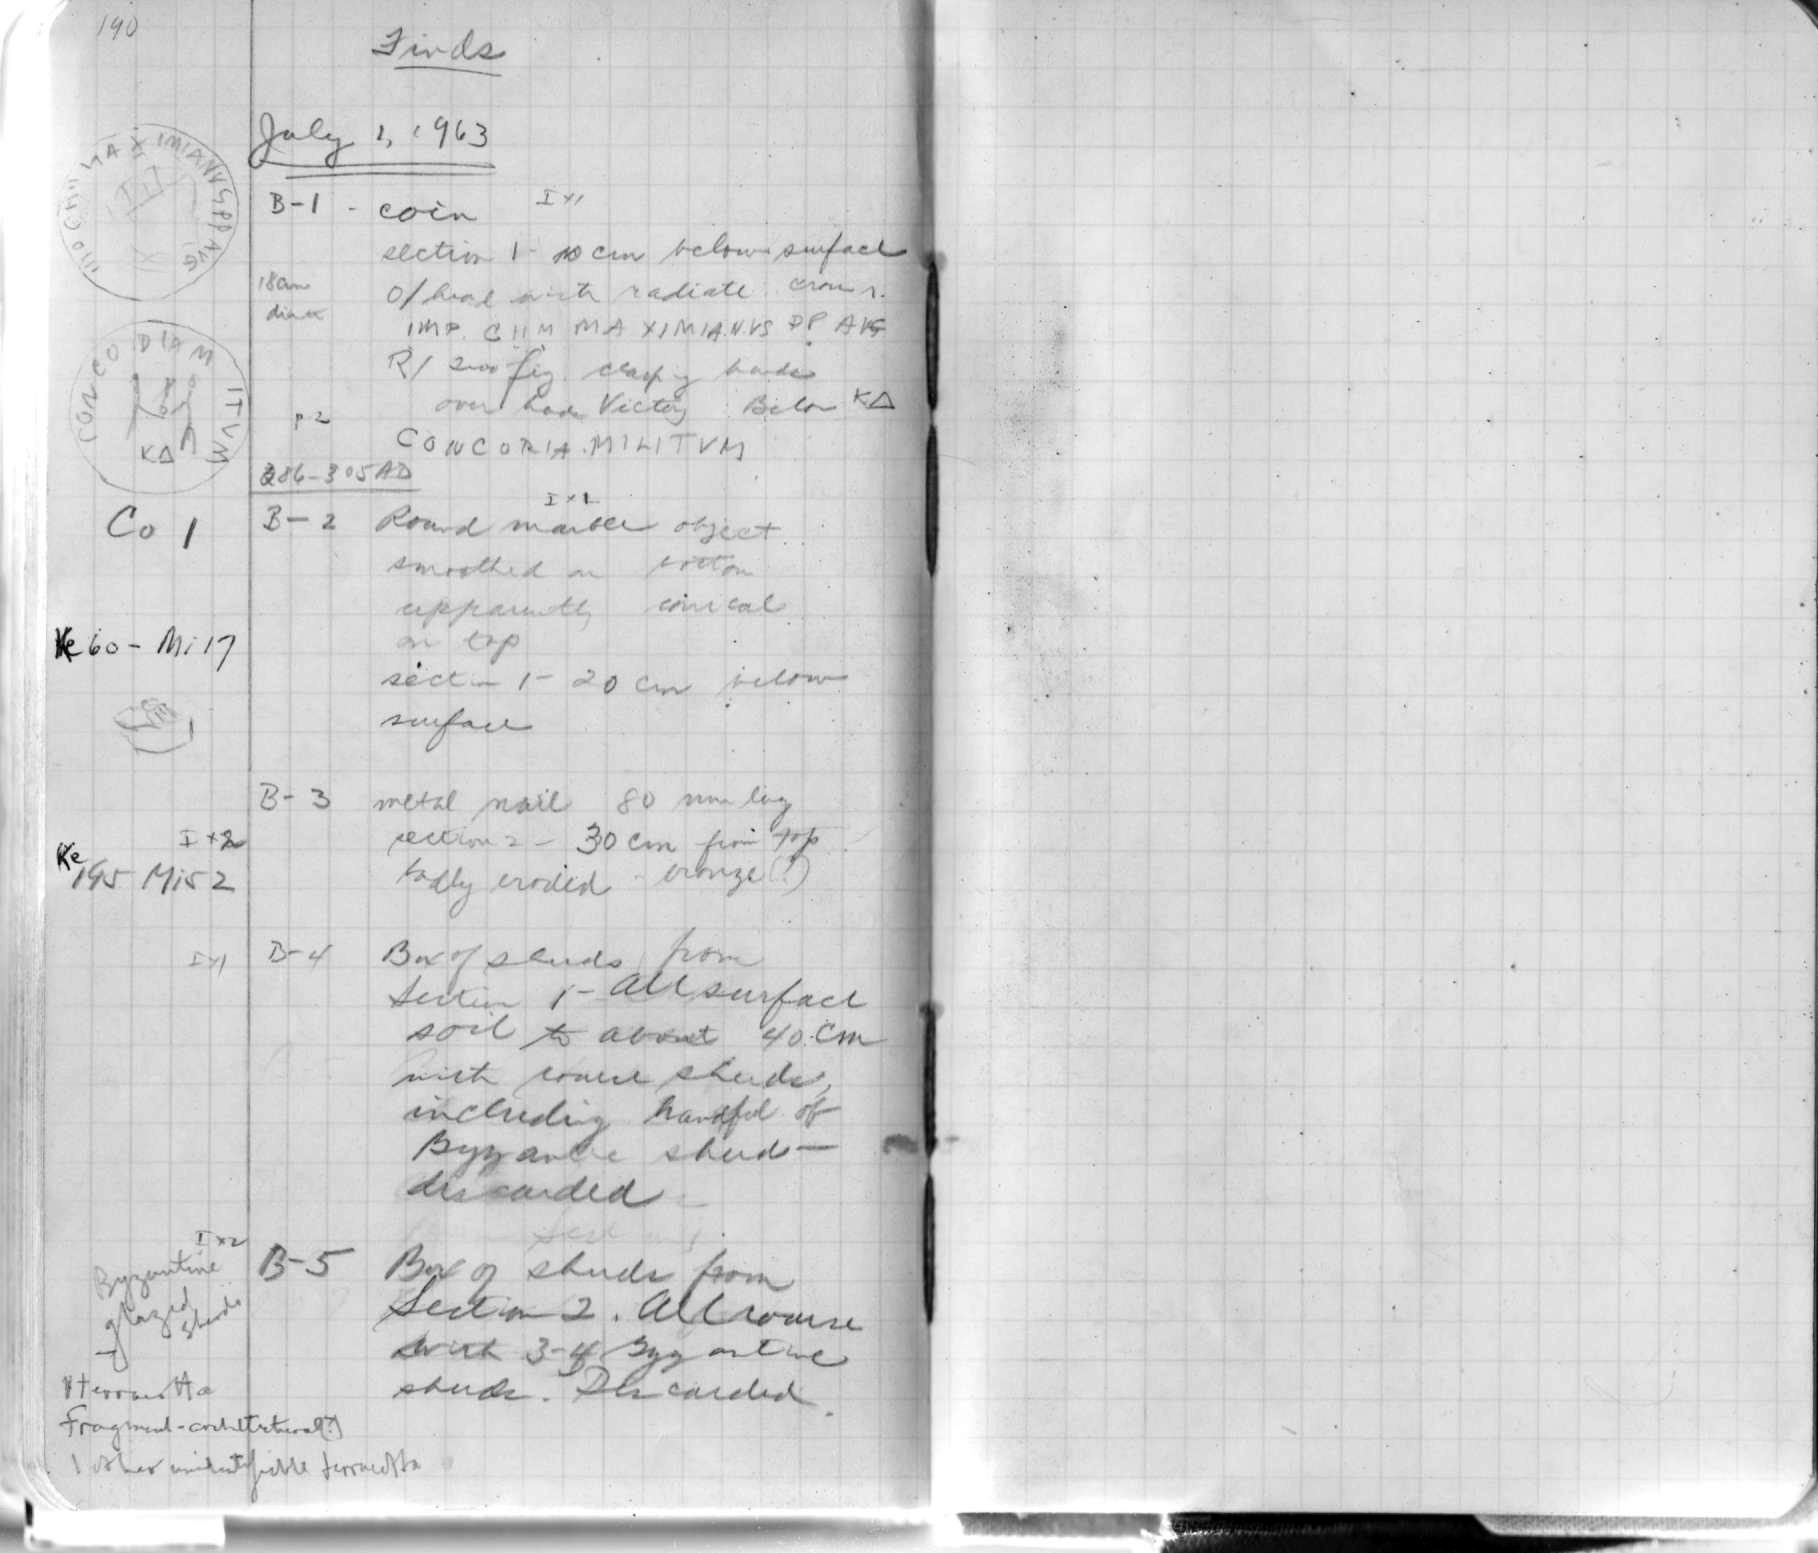 190
Finds
July 1, 1963
B-1 - coin I x1
section 1 - 10 cm below surface
18 cm
diam
O/ head with radiate crown r.
IMP. C II M MAXIMIANVS PP AVG
R/ two fig. clasping hands
over hands Victory Below KΔ
p 2
CONCORIA.MILITVM
286-305 AD
MAXIMIANVS PP AVG
CONCO DIAM
ITVM
KΔ
Co 1
B-2 Round marble object I x1
smoothed on bottom
apparently conical
on top
Ke 60 - Mi 17
section 1 - 20 cm below
surface
B-3 metal nail 80 mm long
I x2
section 2 - 30 cm from top
Ke 195 Mi 52
badly eroded - bronze (?)
I x1
B-4 Box of sherds from
Section 1 - All surface
soil to about 40 cm
with coarse sherds,
including handful of
Byzantine sherds -
discarded
I x2
B-5 Box of sherds from
Section 2. All coarse
with 3-4 Byzantine
sherds. Discarded.
Byzantine
glazed
sherds
1 terracotta
fragment - architectural (?)
1 other unidentifiable terracotta